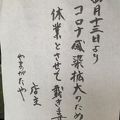 四月十三日より
コロナ感染拡大のため
休業とさせて戴きます
店主
やまがたや